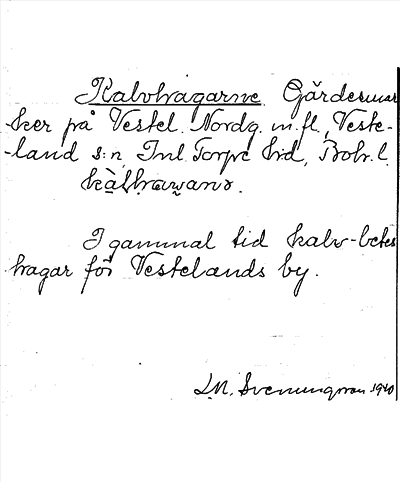 Kalvhagarne. Gärdesmar
ker på Vestel. Nordg. m.fl., Veste-
-land s:n, Inl. Torpe hd, Boh. l.
I gammal tid kalv-betes
hagar för Vestelands by.
J.M. Svenungsson 1940